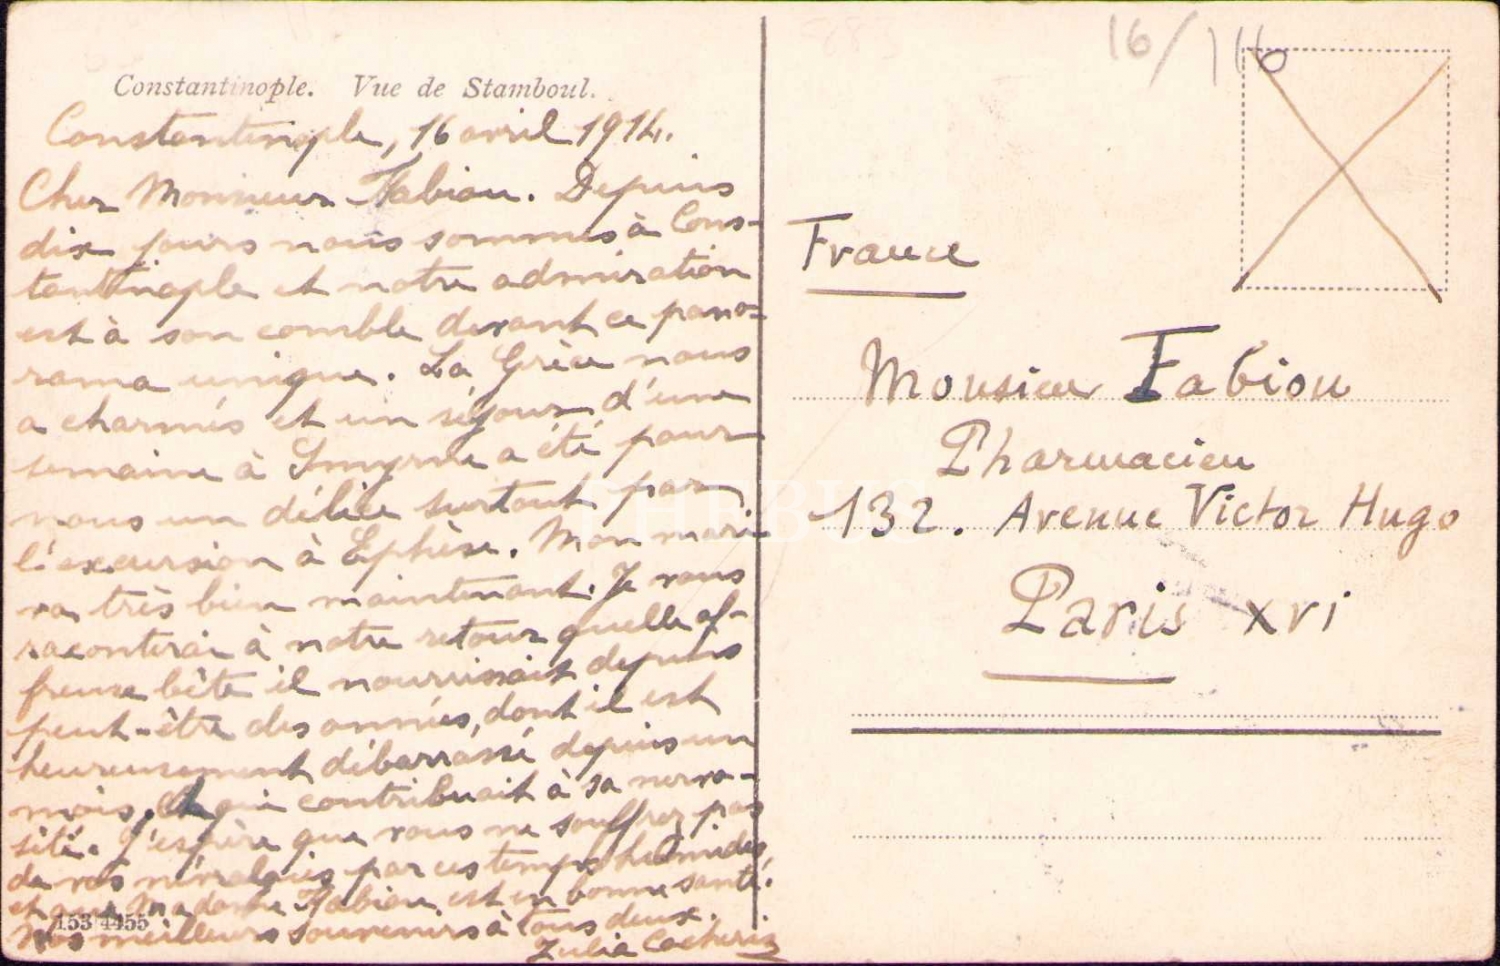 16/116
Constantinople. Vue de Stamboul.
Constantinople, 16 avril 1914.
Cher Monsieur Fabiou. Depuis
dix jours nous sommes à Cons-
tantinople et notre admiration
est à son comble devant ce pano-
rama unique. La Grèce nous
a charmés et un séjour d'une
semaine à Smyrne a été pour
nous un délice surtout par
l'excursion à Ephèse. Mon mari
va très bien maintenant. Je vous
raconterai à notre retour quelle af-
freuse bête il nourrissait depuis
peut-être des années, dont il est
heureusement débarrassé depuis un
mois, et qui contribuait à sa nervo-
sité. J'espère que vous ne souffrez pas
de vos névralgies par ces temps humides,
et que Madame Fabiou est en bonne santé.
Nos meilleurs souvenirs à tous deux.
Julia
153 4455
France
Monsieur Fabiou
Pharmacien
132. Avenue Victor Hugo
Paris XVI
PHEBUS